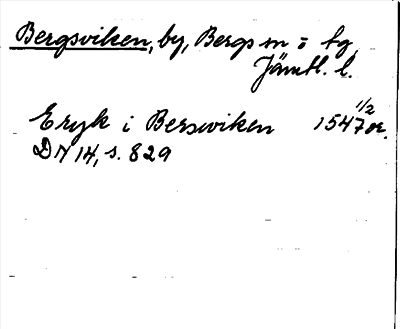 Bergsviken, by, Bergs sn o tg,
Jämtl. l.
Eryk i Berswiken 1547 1/2 or.
DN 14, s. 829